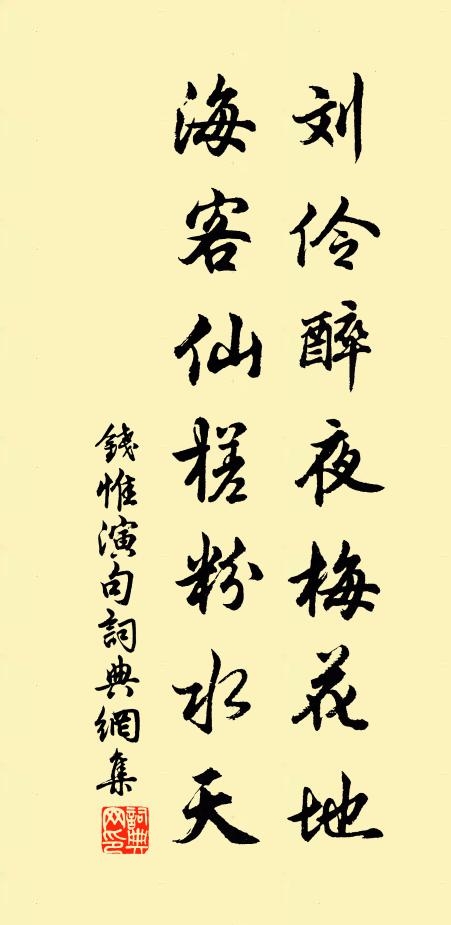 刘伶醉夜梅花地
海客仙槎粉水天
錢惟演句詞典網集
詞典网印